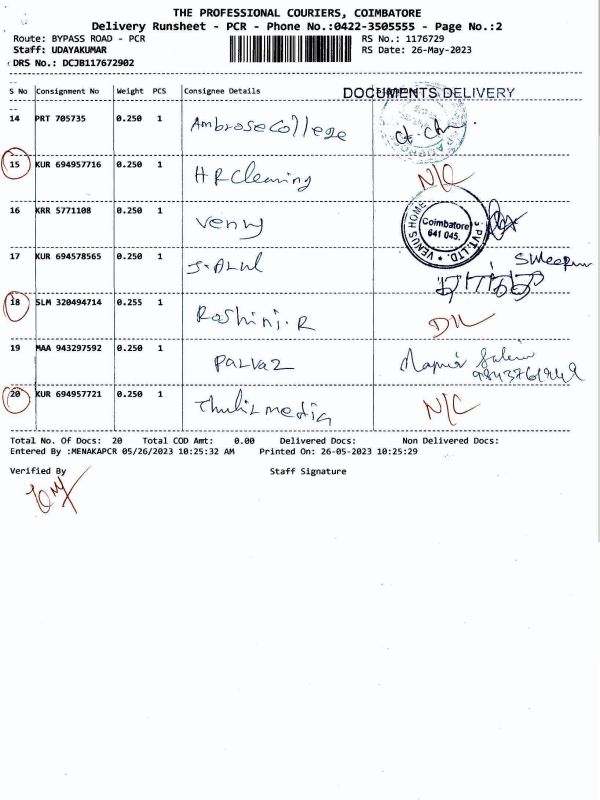 THE PROFESSIONAL COURIERS, COIMBATORE
Delivery Runsheet - PCR - Phone No.:0422-3505555 - Page No.:2
Route: BYPASS ROAD - PCR RS No.: 1176729
Staff: UDAYAKUMAR RS Date: 26-May-2023
DRS No.: DCJB117672902
S No Consignment No Weight PCS Consignee Details DOCUMENTS DELIVERY
14 PRT 705735 0.250 1 Ambrose College
15 KUR 694957716 0.250 1 HR Cleaning N/C
16 KRR 5771108 0.250 1 Venus
VENUS HOME PVT. LTD. Coimbatore 641 045.
17 KUR 694578565 0.250 1
18 SLM 320494714 0.255 1 Roshini.R D/L
19 MAA 943297592 0.250 1
20 KUR 694957721 0.250 1 media N/C
Total No. Of Docs: 20 Total COD Amt: 0.00 Delivered Docs: Non Delivered Docs:
Entered By :MENAKAPCR 05/26/2023 10:25:32 AM Printed On: 26-05-2023 10:25:29
Verified By Staff Signature